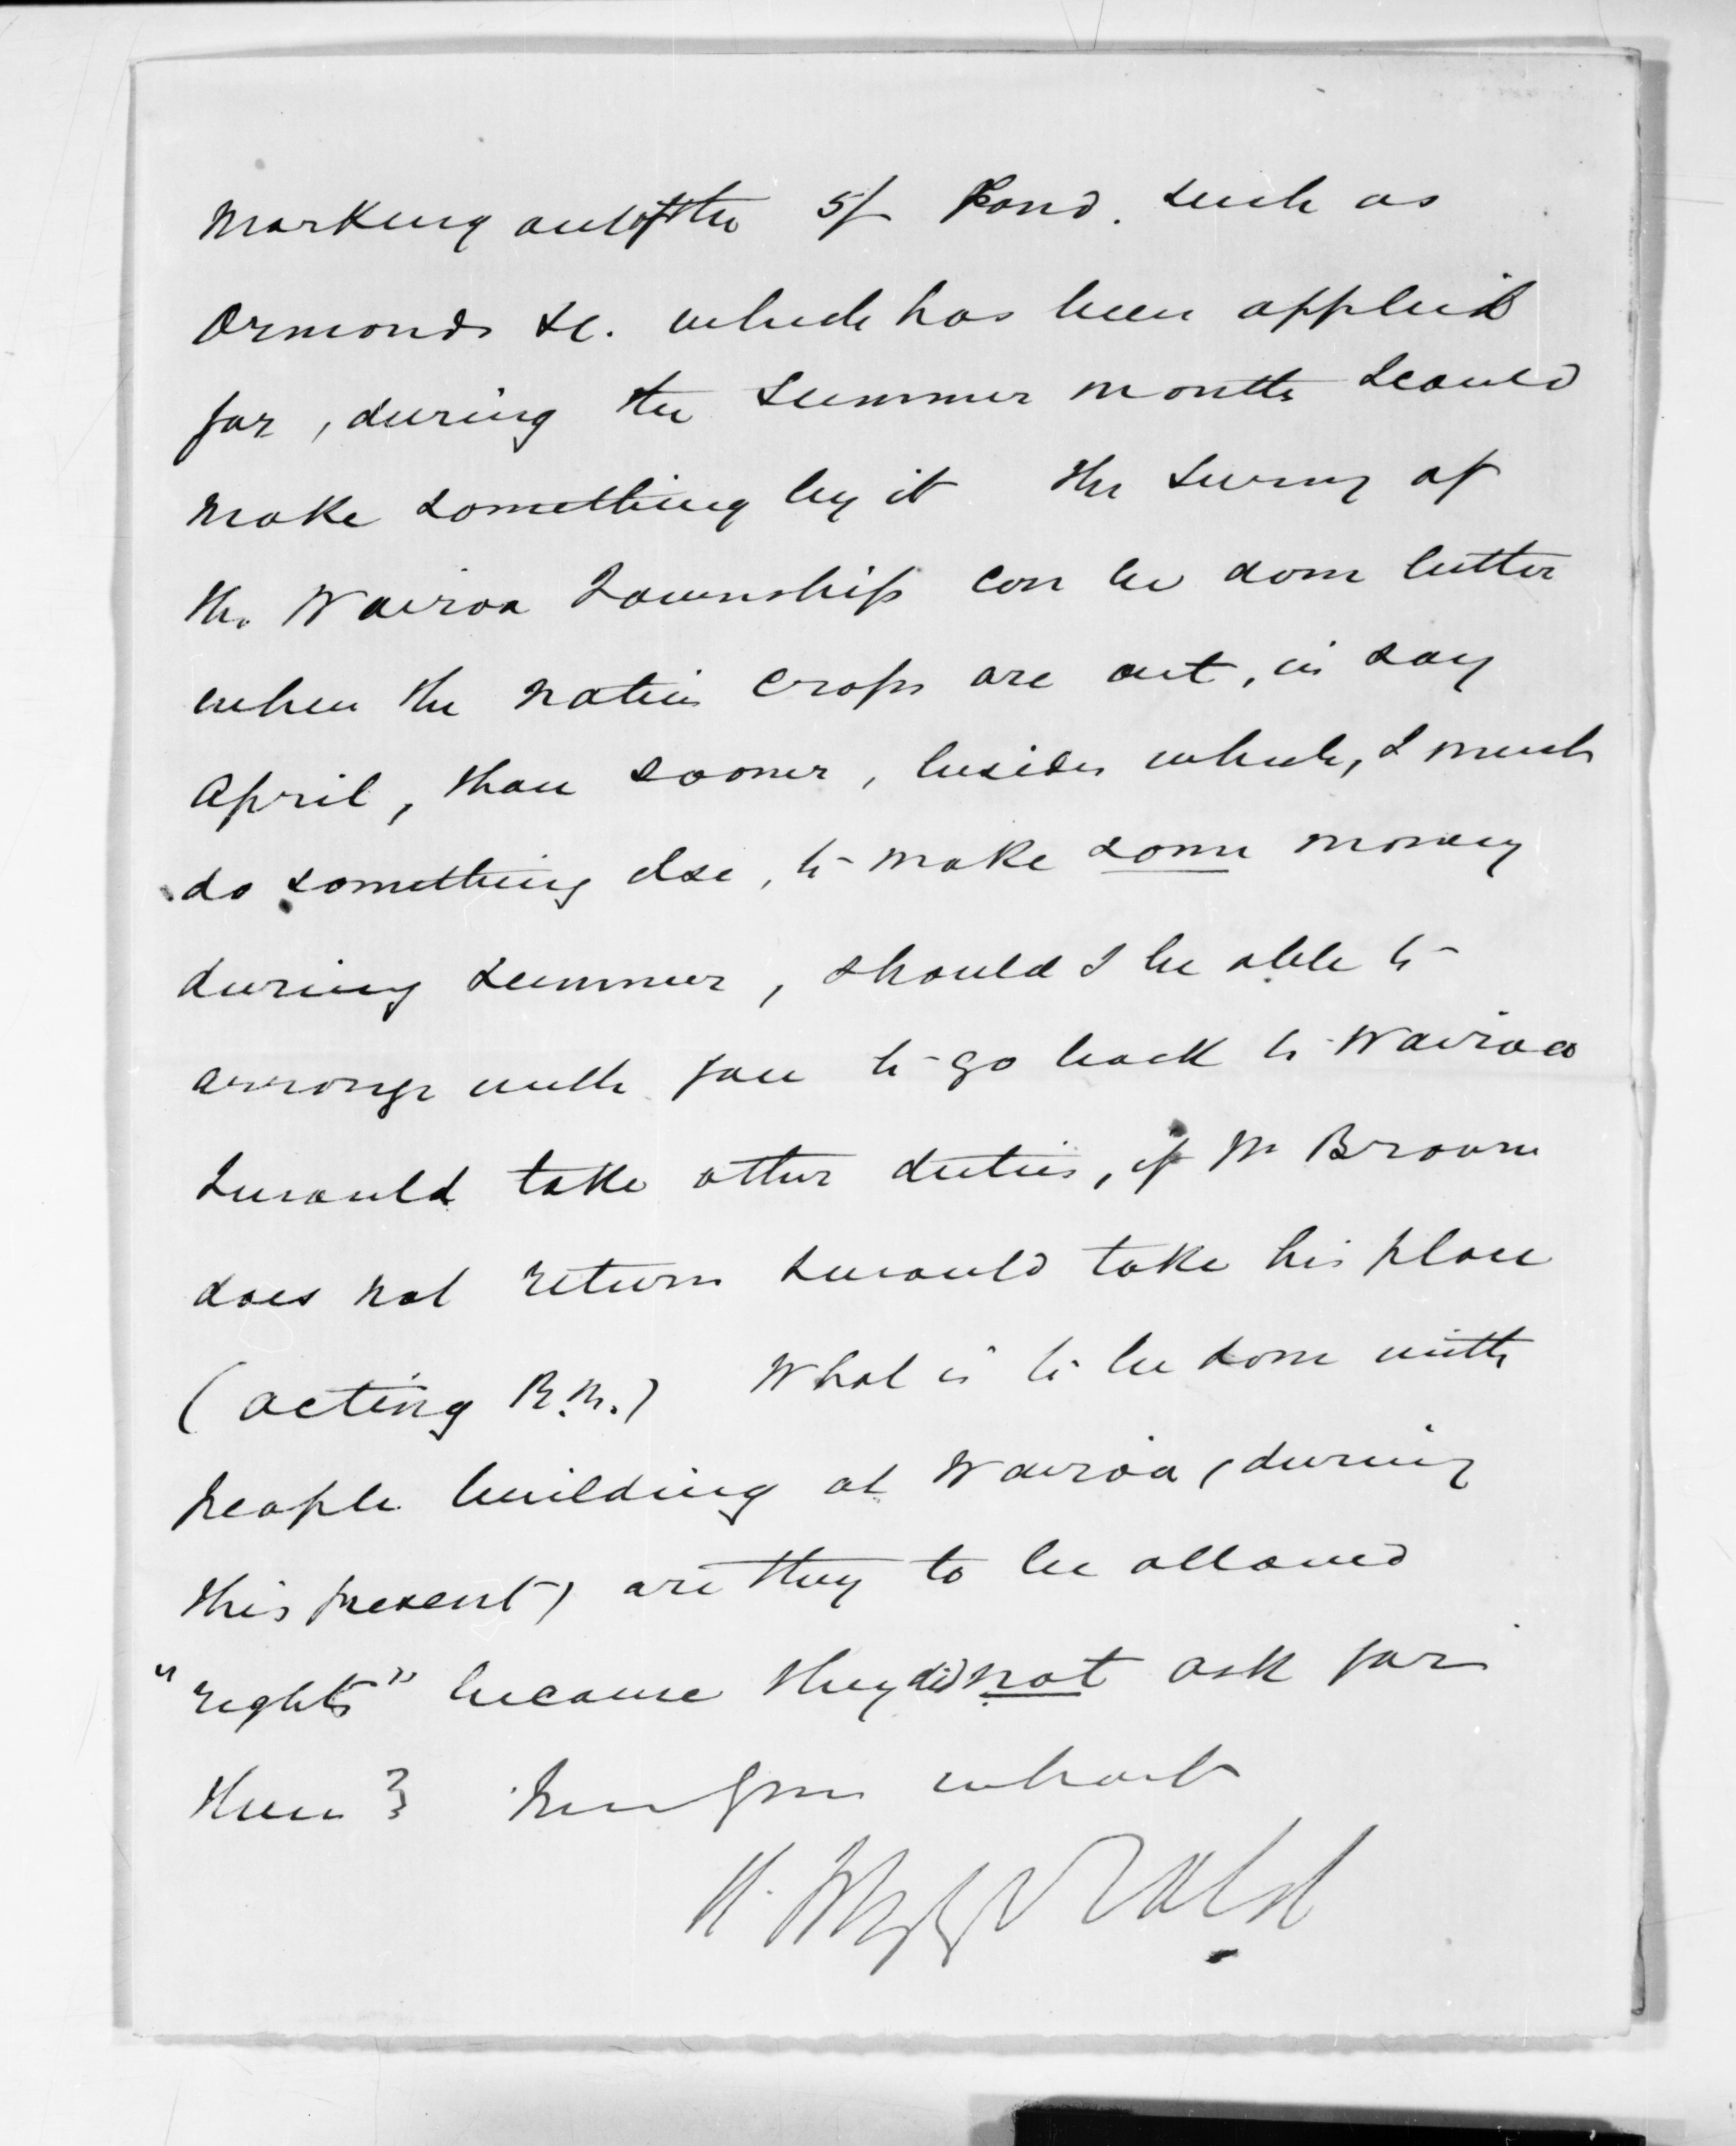 marking out of the 5/ Land. such as
Ormonds &c. which has been applied
for, during the summer months I could
make something by it the survey of
the Wairoa Township can be done better
when the natives crops are out, in say
April, than sooner, besides which, I must
do something else, to make some money
during summer, should I be able to
arrange with you to go back to Wairoa
I would take other duties, if Mr Brown
does not return I would take his place
(acting R.M.) What is to be done with
people building at Wairoa (during
this present) are they to be allowed
"rights" because they did not ask for
them?